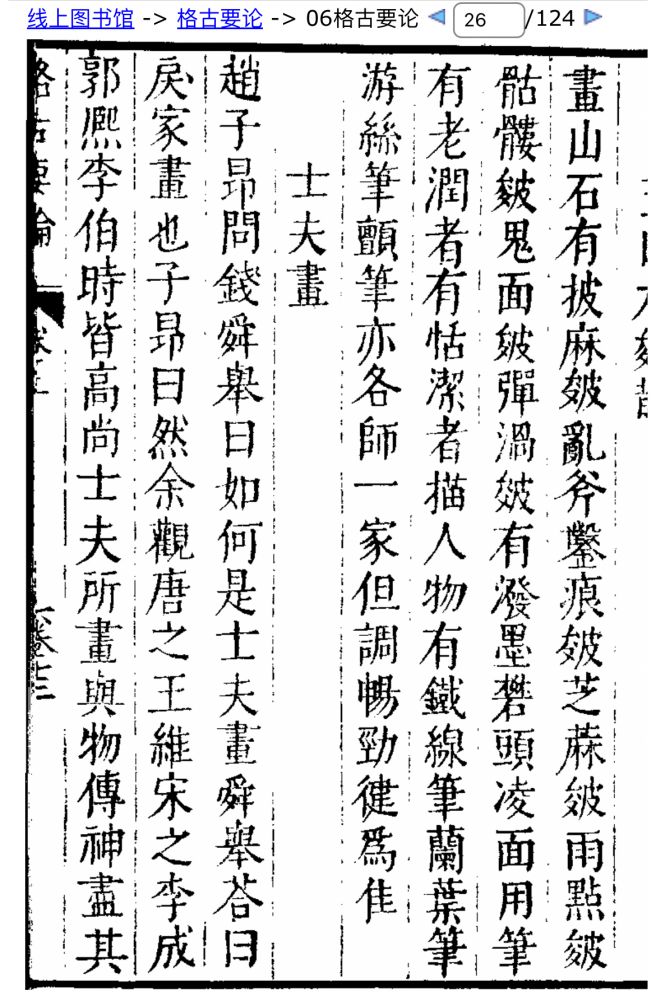 线上图书馆 -> 格古要论 -> 06格古要论 26 /124
畫山石有披麻皴亂斧鑿痕皴芝蔴皴雨點皴
骷髏皴鬼面皴彈渦皴有潑墨礬頭凌面用筆
有老潤者有恬潔者描人物有鐵線筆蘭葉筆
游絲筆顫筆亦各師一家但調暢勁健爲佳
士夫畫
趙子昂問錢舜舉曰如何是士夫畫舜舉荅曰
戾家畫也子昂曰然余觀唐之王維宋之李成
郭熈李伯時皆高尚士夫所畫與物傳神盡其
格古要論